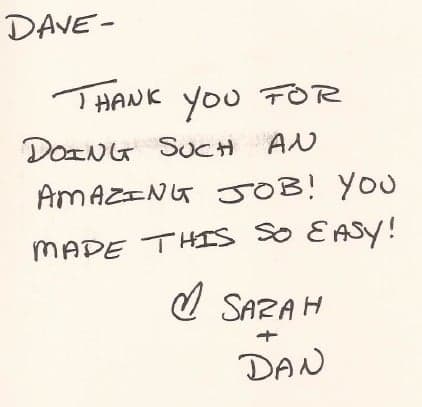 DAVE-
THANK YOU FOR
DOING SUCH AN
AMAZING JOB! YOU
MADE THIS SO EASY!
♡ SARAH
+
DAN